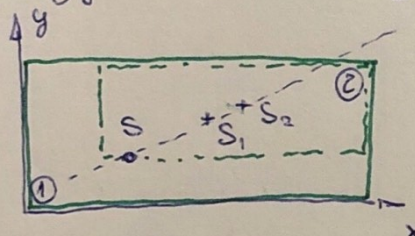 y
②
S
S₁
S₂
①
x